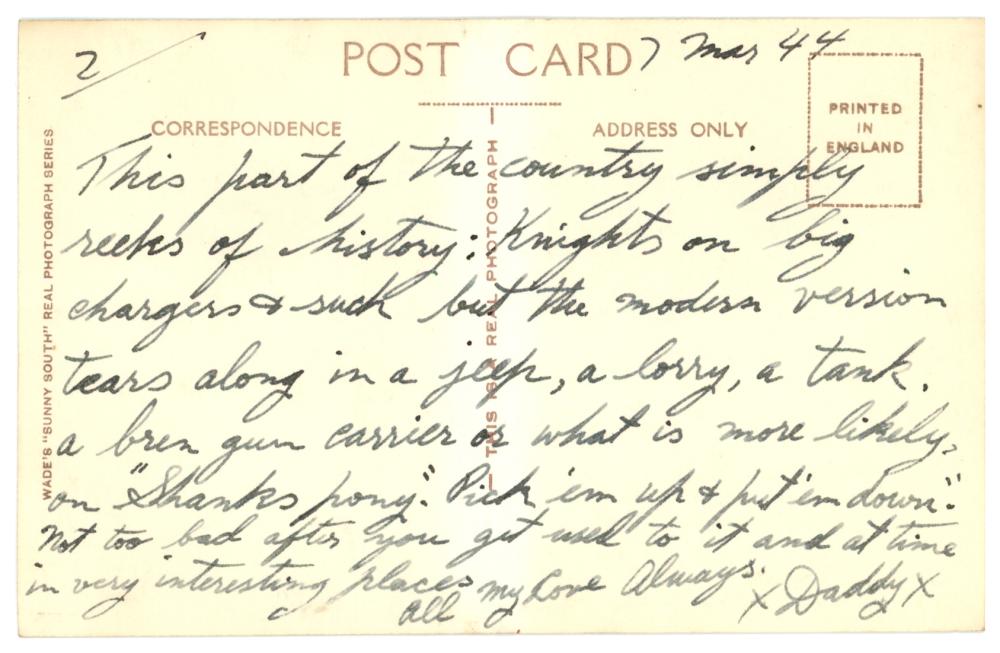 2/
POST CARD
7 Mar 44
CORRESPONDENCE
ADDRESS ONLY
PRINTED
IN
ENGLAND
WADE'S "SUNNY SOUTH" REAL PHOTOGRAPH SERIES
THIS IS A REAL PHOTOGRAPH
This part of the country simply
reeks of history: Knights on big
chargers & such but the modern version
tears along in a jeep, a lorry, a tank,
a bren gun carrier or what is more likely,
on "Shanks pony". Pick 'em up & put 'em down".
Not too bad after you get used to it and at time
in very interesting places
All my Love Always.
x Daddy x